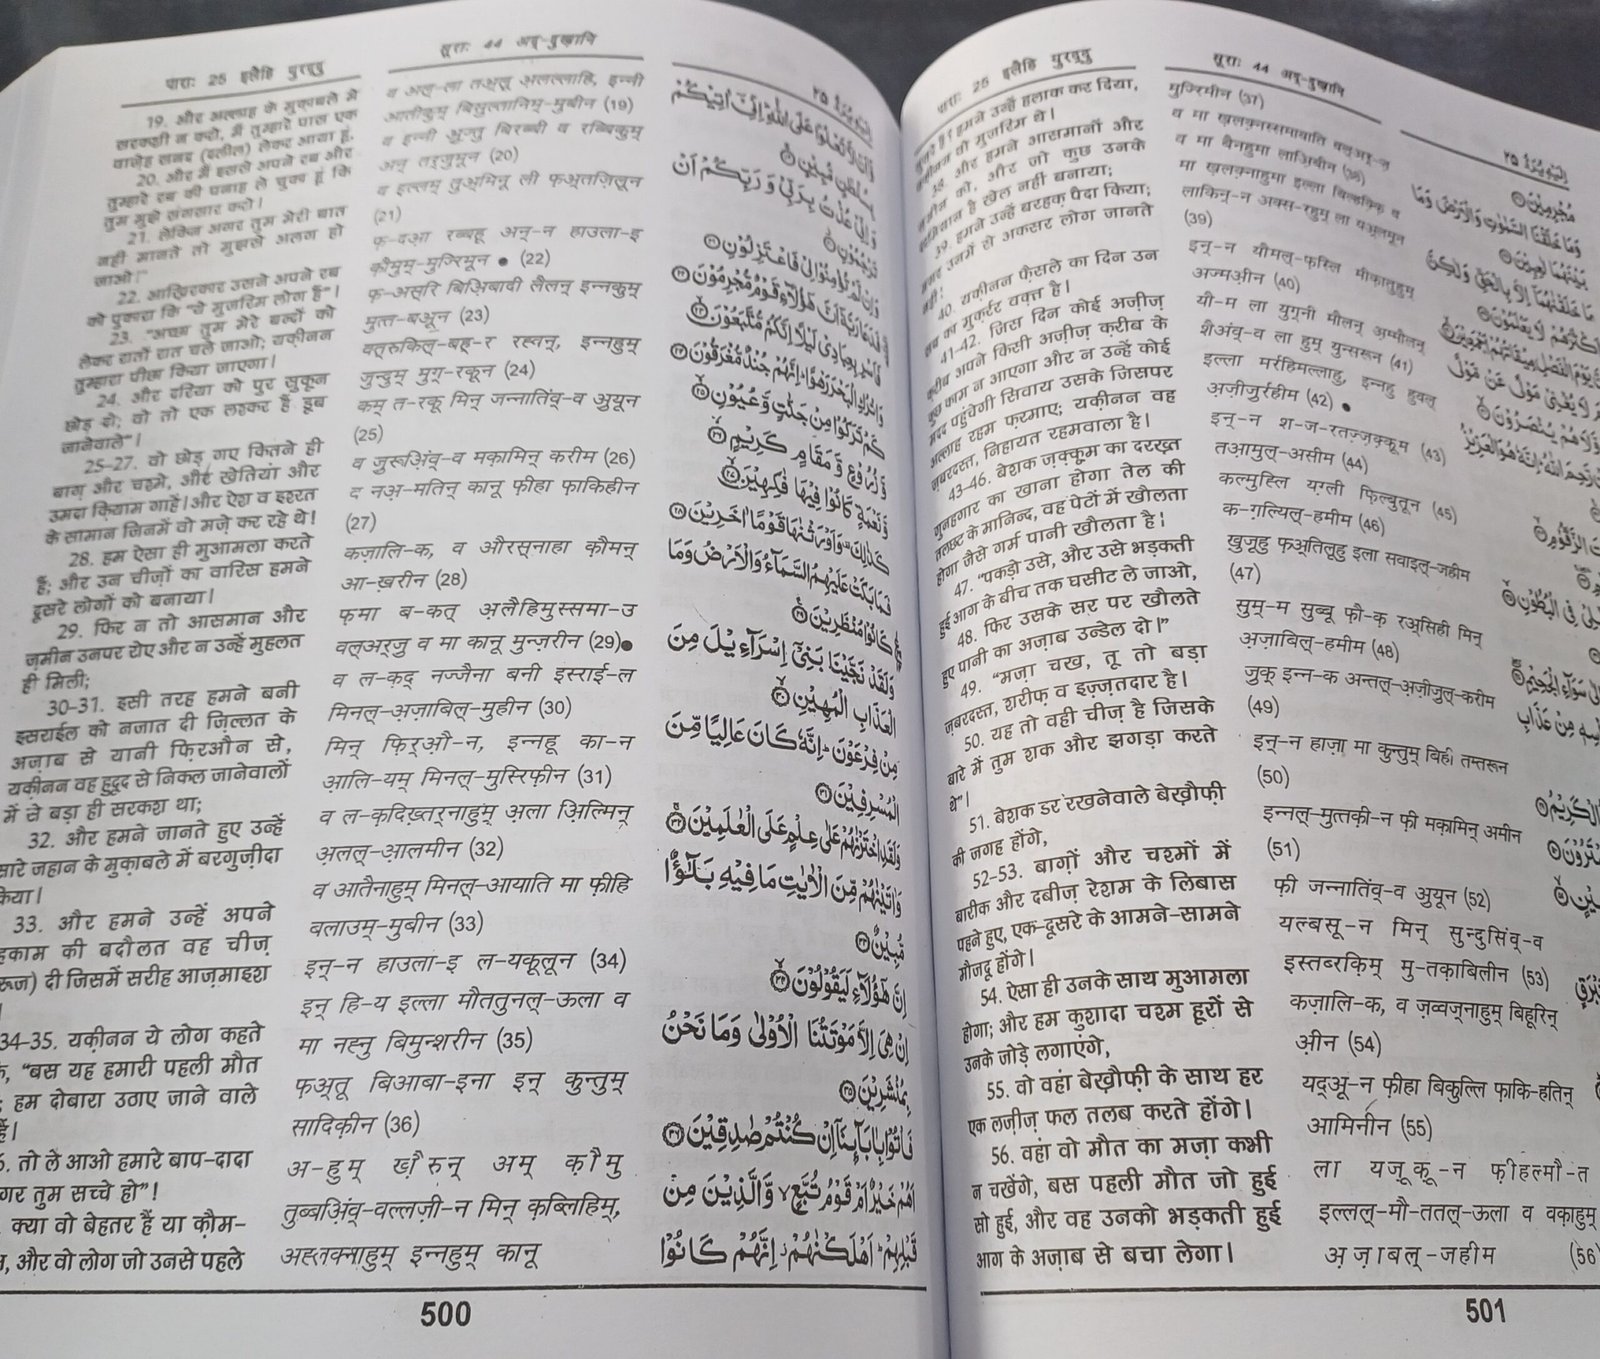 पाराः 25 इलैहि युरद्दु
सूराः 44 अद्-दुख़ानि
19. और अल्लाह के मुक़ाबले में
सरकशी न करो, मैं तुम्हारे पास एक
वाज़ेह सनद (दलील) लेकर आया हूं,
20. और मैं इससे अपने रब और
तुम्हारे रब की पनाह ले चुका हूं कि
तुम मुझे संगसार करो।
21. लेकिन अगर तुम मेरी बात
नहीं मानते तो मुझसे अलग हो
जाओ!"
22. आख़िरकार उसने अपने रब
को पुकारा कि "ये मुजरिम लोग हैं"।
23. "अच्छा तुम मेरे बन्दों को
लेकर रातों रात चले जाओ; यक़ीनन
तुम्हारा पीछा किया जाएगा।
24. और दरिया को पुर सुकून
छोड़ दो; वो तो एक लश्कर हैं डूब
जानेवाले"।
25-27. वो छोड़ गए कितने ही
बाग़ और चश्मे, और खेतियां और
उमदा क़ियाम गाहें। और ऐश व इशरत
के सामान जिनमें वो मज़े कर रहे थे!
28. हम ऐसा ही मुआमला करते
हैं; और उन चीज़ों का वारिस हमने
दूसरे लोगों को बनाया।
29. फिर न तो आसमान और
ज़मीन उनपर रोए और न उन्हें मुहलत
ही मिली;
30-31. इसी तरह हमने बनी
इसराईल को नजात दी ज़िल्लत के
अज़ाब से यानी फ़िरऔन से,
यक़ीनन वह हुदूद से निकल जानेवालों
में से बड़ा ही सरकश था;
32. और हमने जानते हुए उन्हें
सारे जहान के मुक़ाबले में बरगुज़ीदा
किया।
33. और हमने उन्हें अपने
की बदौलत वह चीज़
दी जिसमें सरीह आज़माइश
34-35. यक़ीनन ये लोग कहते
"बस यह हमारी पहली मौत
हम दोबारा उठाए जाने वाले
तो ले आओ हमारे बाप-दादा
तुम सच्चे हो"!
क्या वो बेहतर हैं या क़ौम-
और वो लोग जो उनसे पहले
व अल्-ला तअ़्लू अ़लल्लाहि, इन्नी
आतीकुम् बिसुल्तानिम्-मुबीन (19)
व इन्नी अुज़्तु बिरब्बी व रब्बिकुम्
अन् तर्जुमून (20)
व इल्लम् तुअ्मिनू ली फ़अ़्तज़िलून
(21)
फ़-दआ़ रब्बहू अन्-न हाउला-इ
क़ौमुम्-मुज्रिमून ● (22)
फ़-अस्रि बिअ़िबादी लैलन् इन्नकुम्
मुत्त-बअ़ून (23)
वत्रुकिल्-बह्-र रह्वन्, इन्नहुम्
जुन्दुम् मुग़्-रक़ून (24)
कम् त-रकू मिन् जन्नातिंव्-व अ़ुयून
(25)
व ज़ुरूअ़िंव्-व मक़ामिन् करीम (26)
व नअ़्-मतिन् कानू फ़ीहा फ़ाकिहीन
(27)
कज़ालि-क, व औरस्नाहा क़ौमन्
आ-ख़रीन (28)
फ़मा ब-कत् अ़लैहिमुस्समा-उ
वल्अर्ज़ु व मा कानू मुन्ज़रीन (29)●
व ल-क़द् नज्जैना बनी इस्राई-ल
मिनल्-अ़ज़ाबिल्-मुहीन (30)
मिन् फ़िर्औ़-न, इन्नहू का-न
आ़लि-यम् मिनल्-मुस्रिफ़ीन (31)
व ल-क़दिख़्तर्नाहुम् अ़ला अ़िल्मिन्
अ़लल्-आ़लमीन (32)
व आतैनाहुम् मिनल्-आयाति मा फ़ीहि
बलाउम्-मुबीन (33)
इन्-न हाउला-इ ल-यक़ूलून (34)
इन् हि-य इल्ला मौततुनल्-ऊला व
मा नह्नु बिमुन्शरीन (35)
फ़अ्तू बिआबा-इना इन् कुन्तुम्
सादिक़ीन (36)
अ-हुम् ख़ैरुन् अम् क़ौमु
तुब्बअ़िंव्-वल्लज़ी-न मिन् क़ब्लिहिम्,
अह्लक्नाहुम् इन्नहुम् कानू
وَّاَنْ لَّا تَعْلُوْا عَلَى اللّٰهِ اِنِّیْۤ اٰتِیْكُمْ
بِسُلْطٰنٍ مُّبِیْنٍ ۱۹
وَاِنِّیْ عُذْتُ بِرَبِّیْ وَرَبِّكُمْ اَنْ
تَرْجُمُوْنِ ۲۰
وَاِنْ لَّمْ تُؤْمِنُوْا لِیْ فَاعْتَزِلُوْنِ ۲۱
فَدَعَا رَبَّهٗۤ اَنَّ هٰۤؤُلَآءِ قَوْمٌ مُّجْرِمُوْنَ ۲۲
فَاَسْرِ بِعِبَادِیْ لَیْلًا اِنَّكُمْ مُّتَّبَعُوْنَ ۲۳
وَاتْرُكِ الْبَحْرَ رَهْوًا اِنَّهُمْ جُنْدٌ مُّغْرَقُوْنَ ۲۴
كَمْ تَرَكُوْا مِنْ جَنّٰتٍ وَّعُیُوْنٍ ۲۵
وَّزُرُوْعٍ وَّمَقَامٍ كَرِیْمٍ ۲۶
وَّنَعْمَةٍ كَانُوْا فِیْهَا فٰكِهِیْنَ ۲۷
كَذٰلِكَ وَاَوْرَثْنٰهَا قَوْمًا اٰخَرِیْنَ ۲۸
فَمَا بَكَتْ عَلَیْهِمُ السَّمَآءُ وَالْاَرْضُ وَمَا
كَانُوْا مُنْظَرِیْنَ ۲۹
وَلَقَدْ نَجَّیْنَا بَنِیْۤ اِسْرَآءِیْلَ مِنَ
الْعَذَابِ الْمُهِیْنِ ۳۰
مِنْ فِرْعَوْنَ اِنَّهٗ كَانَ عَالِیًا مِّنَ
الْمُسْرِفِیْنَ ۳۱
وَلَقَدِ اخْتَرْنٰهُمْ عَلٰی عِلْمٍ عَلَی الْعٰلَمِیْنَ ۳۲
وَاٰتَیْنٰهُمْ مِّنَ الْاٰیٰتِ مَا فِیْهِ بَلٰٓؤٌا
مُّبِیْنٌ ۳۳
اِنَّ هٰۤؤُلَآءِ لَیَقُوْلُوْنَ ۳۴
اِنْ هِیَ اِلَّا مَوْتَتُنَا الْاُوْلٰی وَمَا نَحْنُ
بِمُنْشَرِیْنَ ۳۵
فَاْتُوْا بِاٰبَآئِنَاۤ اِنْ كُنْتُمْ صٰدِقِیْنَ ۳۶
اَهُمْ خَیْرٌ اَمْ قَوْمُ تُبَّعٍ وَّالَّذِیْنَ مِنْ
قَبْلِهِمْ اَهْلَكْنٰهُمْ اِنَّهُمْ كَانُوْا
500
पाराः 25 इलैहि युरद्दु
सूराः 44 अद्-दुख़ानि
हमने उन्हें हलाक कर दिया,
वो मुजरिम थे।
38. और हमने आसमानों और
को, और जो कुछ उनके
है खेल नहीं बनाया;
39. हमने उन्हें बरहक़ पैदा किया;
मगर उनमें से अकसर लोग जानते
नहीं!
40. यक़ीनन फ़ैसले का दिन उन
सब का मुक़र्रर वक़्त है।
41-42. जिस दिन कोई अज़ीज़
क़रीब अपने किसी अज़ीज़ क़रीब के
कुछ काम न आएगा और न उन्हें कोई
मदद पहुंचेगी सिवाय उसके जिसपर
अल्लाह रहम फ़रमाए; यक़ीनन वह
ज़बरदस्त, निहायत रहमवाला है।
43-46. बेशक ज़क़्क़ूम का दरख़्त
गुनहगार का खाना होगा तेल की
तलछट के मानिन्द, वह पेटों में खौलता
होगा जैसे गर्म पानी खौलता है!
47. "पकड़ो उसे, और उसे भड़कती
हुई आग के बीच तक घसीट ले जाओ,
48. फिर उसके सर पर खौलते
हुए पानी का अज़ाब उन्डेल दो।"
49. "मज़ा चख, तू तो बड़ा
ज़बरदस्त, शरीफ़ व इज़्ज़तदार है।
50. यह तो वही चीज़ है जिसके
बारे में तुम शक और झगड़ा करते
थे"।
51. बेशक डर रखनेवाले बेख़ौफ़ी
की जगह होंगे,
52-53. बाग़ों और चश्मों में
बारीक और दबीज़ रेशम के लिबास
पहने हुए, एक-दूसरे के आमने-सामने
मौजूद होंगे।
54. ऐसा ही उनके साथ मुआमला
होगा; और हम कुशादा चश्म हूरों से
उनके जोड़े लगाएंगे,
55. वो वहां बेख़ौफ़ी के साथ हर
एक लज़ीज़ फल तलब करते होंगे।
56. वहां वो मौत का मज़ा कभी
न चखेंगे, बस पहली मौत जो हुई
सो हुई, और वह उनको भड़कती हुई
आग के अज़ाब से बचा लेगा।
मुज्रिमीन (37)
व मा ख़लक़्नस्समावाति वल्अर्-ज़
व मा बैनहुमा लाअ़िबीन (38)
मा ख़लक़्नाहुमा इल्ला बिल्हक़्क़ि व
लाकिन्-न अक्स-रहुम् ला यअ़्लमून
(39)
इन्-न यौमल्-फ़स्लि मीक़ातुहुम्
अज्मअ़ीन (40)
यौ-म ला युग़्नी मौलन् अ़म्मौलन्
शैअंव्-व ला हुम् युन्सरून (41)
इल्ला मर्रहिमल्लाहु, इन्नहू हुवल्
अ़ज़ीज़ुर्रहीम (42) ●
इन्-न श-ज-रतज़्ज़क़्क़ूम (43)
तआ़मुल्-असीम (44)
कल्मुह्लि यग़्ली फ़िल्बुतून (45)
क-ग़ल्यिल्-हमीम (46)
ख़ुज़ूहु फ़अ़्तिलूहु इला सवाइल्-जहीम
(47)
सुम्-म सुब्बू फ़ौ-क़ रअ्सिही मिन्
अ़ज़ाबिल्-हमीम (48)
ज़ुक़् इन्न-क अन्तल्-अ़ज़ीज़ुल्-करीम
(49)
इन्-न हाज़ा मा कुन्तुम् बिही तम्तरून
(50)
इन्नल्-मुत्तक़ी-न फ़ी मक़ामिन् अमीन
(51)
फ़ी जन्नातिंव्-व अ़ुयून (52)
यल्बसू-न मिन् सुन्दुसिंव्-व
इस्तब्रक़िम् मु-तक़ाबिलीन (53)
कज़ालि-क, व ज़व्वज्नाहुम् बिहूरिन्
अ़ीन (54)
यद्अ़ू-न फ़ीहा बिकुल्लि फ़ाकि-हतिन्
आमिनीन (55)
ला यज़ूक़ू-न फ़ीहल्मौ-त
इल्लल्-मौ-ततल्-ऊला व वक़ाहुम्
अ़ज़ाबल्-जहीम (56
مُجْرِمِیْنَ
وَمَا خَلَقْنَا السَّمٰوٰتِ وَالْاَرْضَ وَمَا
بَیْنَهُمَا لٰعِبِیْنَ
مَا خَلَقْنٰهُمَاۤ اِلَّا بِالْحَقِّ وَلٰكِنَّ
اَكْثَرَهُمْ لَا یَعْلَمُوْنَ
یَوْمَ الْفَصْلِ مِیْقَاتُهُمْ اَجْمَعِیْنَ
لَا یُغْنِیْ مَوْلًی عَنْ مَّوْلًی
وَّلَا هُمْ یُنْصَرُوْنَ
رَّحِمَ اللّٰهُ اِنَّهٗ هُوَ الْعَزِیْزُ
الزَّقُّوْمِ
فِی الْبُطُوْنِ
سَوَآءِ الْجَحِیْمِ
مِنْ عَذَابِ
الْكَرِیْمُ
501